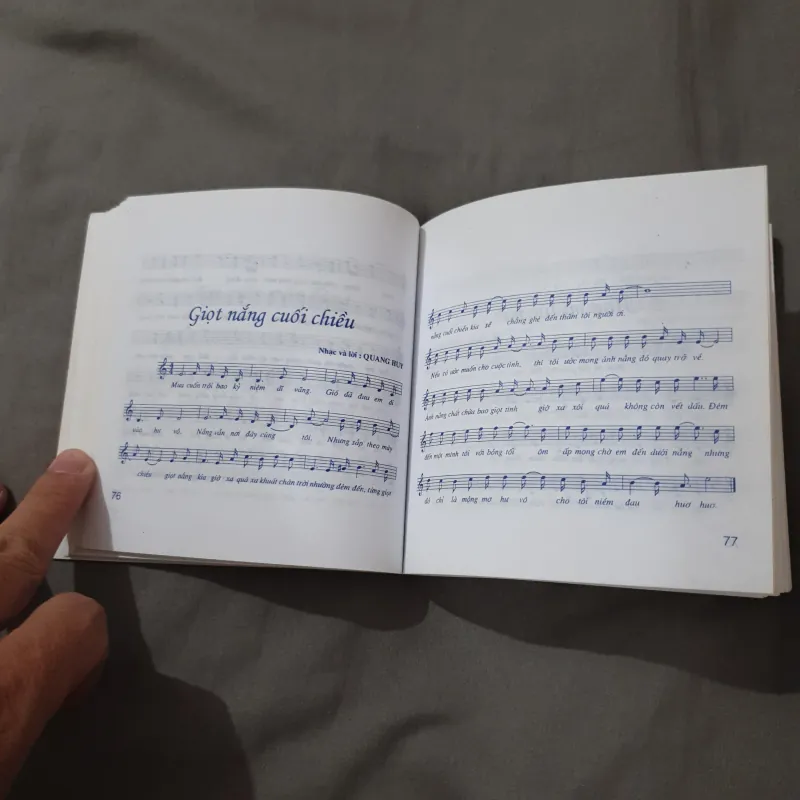 Giọt nắng cuối chiều
Nhạc và lời : QUANG HUY
Mưa cuốn trôi bao kỷ niệm dĩ vãng. Gió đã đưa em đi
vào hư vô. Nắng vẫn nơi đây cùng tôi. Nhưng sắp theo mây
chiều giọt nắng kia giờ xa quá xa khuất chân trời nhường đêm đến, từng giọt
76
nắng cuối chiều kia sẽ chẳng ghé đến thăm tôi người ơi.
Nếu có ước muốn cho cuộc tình, thì tôi ước mong ánh nắng đó quay trở về.
Ánh nắng chất chứa bao giọt tình giờ xa xôi quá không còn vết dấu. Đêm
đến một mình tôi với bóng tối ôm ấp mong chờ em đến dưới nắng nhưng
đó chỉ là mộng mơ hư vô cho tôi niềm đau hư hao.
77